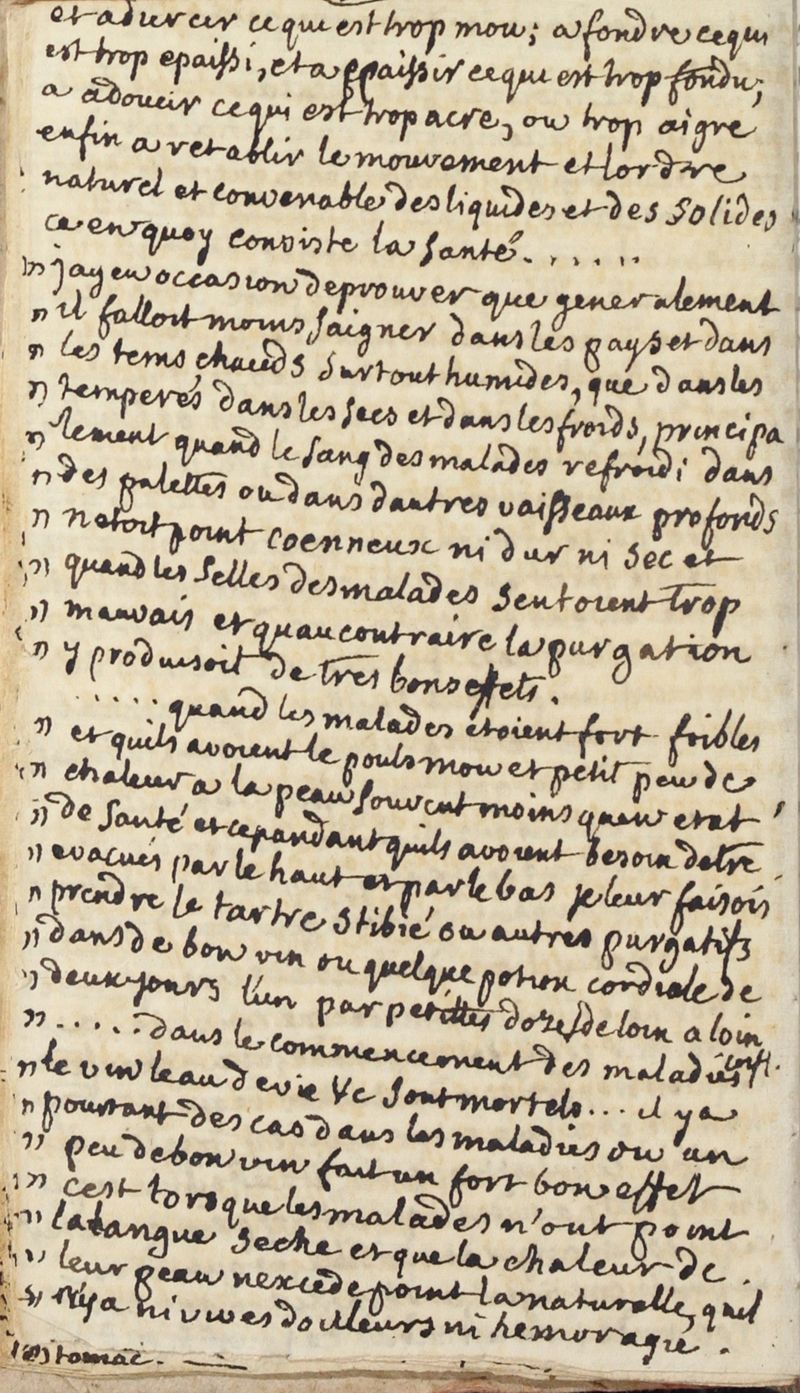 et a durcir ce qui est trop mou; a fondre ce qui
est trop epaissi, et a epaissir ce qui est trop fondu;
a adoucir ce qui est trop acre, ou trop aigre
enfin a retablir le mouvement et lordre
naturel et convenable des liquides et des solides
ce en quoy consiste la santé. . . . . .
" jay eu occasion deprouver que generalement
" il falloit moins saigner dans les pays et dans
" les tems chauds surtout humides, que dans les
" temperés dans les secs et dans les froids, principa
" lement quand le sang des malades refroidi dans
" des palettes ou dans dautres vaisseaux profonds
" netoit point coenneux ni dur ni sec et
" quand les selles des malades sentoient trop
" mauvais et quau contraire la purgation
" y produisoit de tres bons effets.
. . . . . quand les malades étoient fort foibles
" et quils avoient le pouls mou et petit peu de
" chaleur a la peau souvent moins quen etat
" de santé et cependant quils avoient besoin detre
" evacués par le haut et par le bas je leur faisois
" prendre le tartre stibié ou autres purgatifs
" dans de bon vin ou quelque potion cordiale de
" deux jours lun par petittes dozes de loin a loin
" . . . . . dans le commencement des maladies
" le vin leau de vie &c sont mortels... il y a
" pourtant des cas dans les maladies ou un
" peu de bon vin fait un fort bon effet
" cest lors que les malades n'ont point
" la langue seche et que la chaleur de
" leur peau nexcede point la naturelle, quil
" ny a ni vives douleurs ni hemoragie.
estomac.